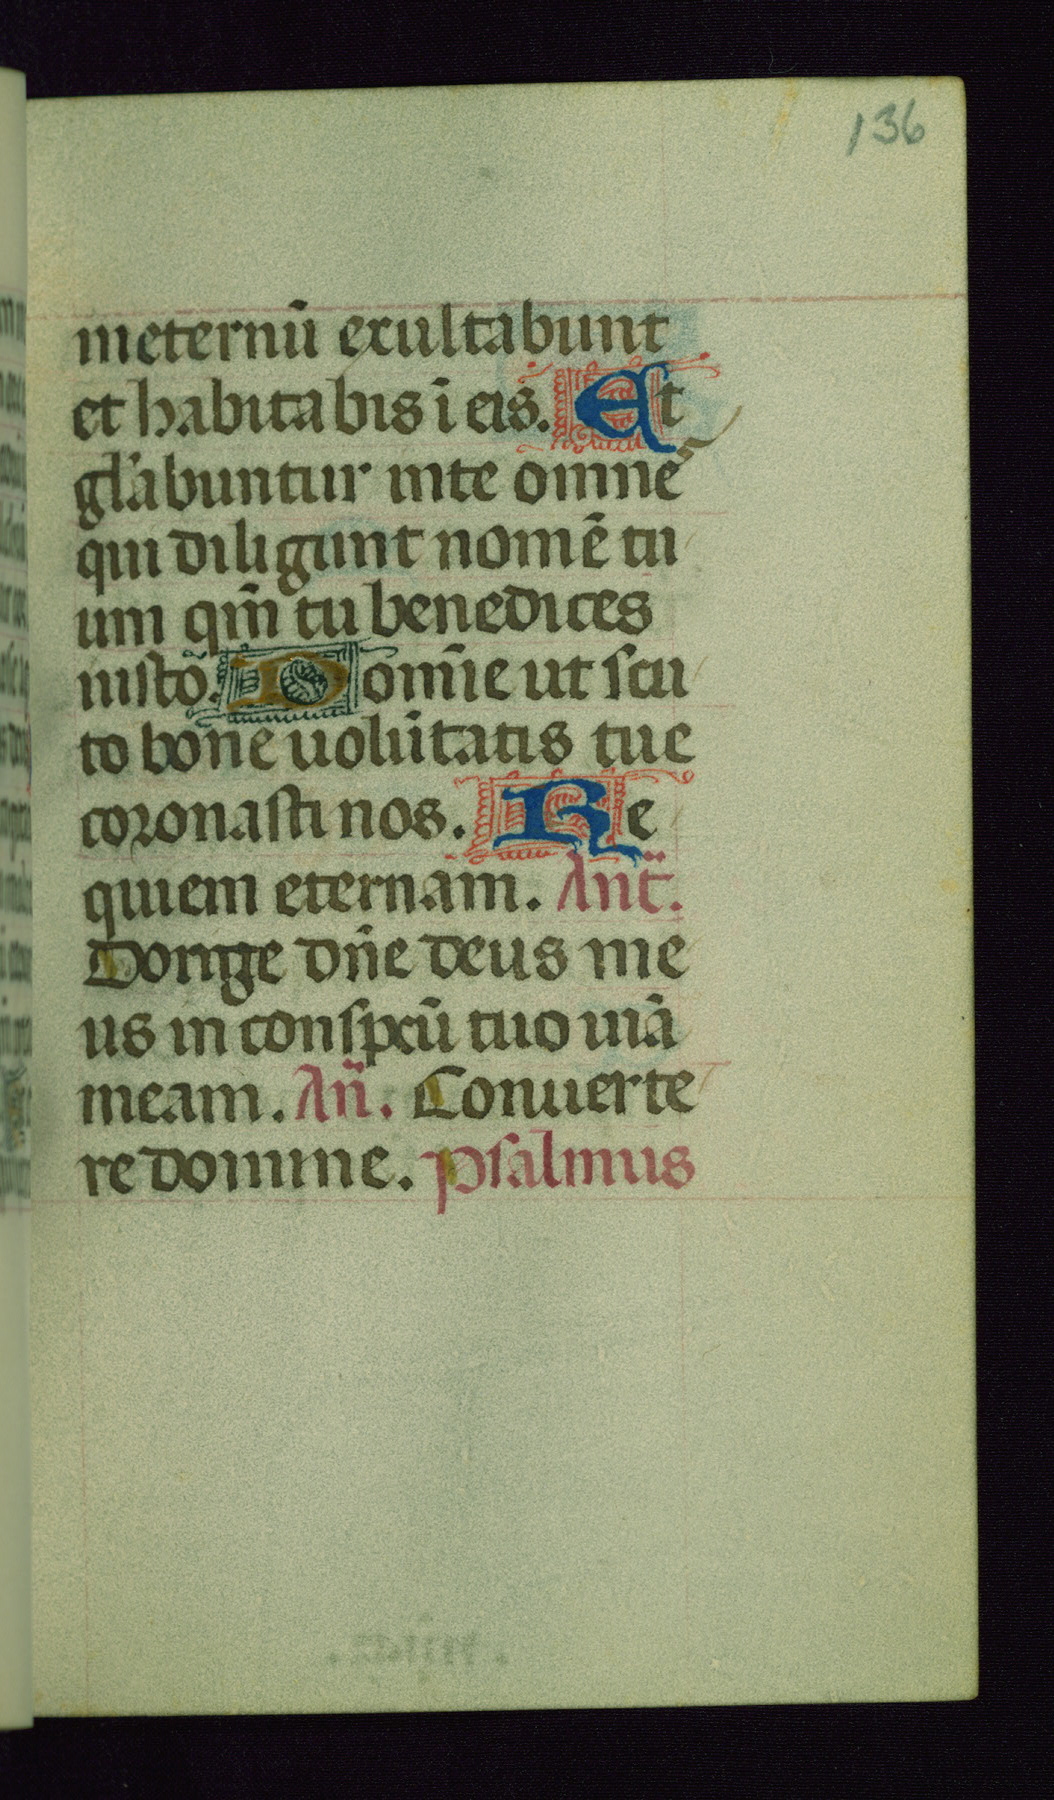 136
ineternū exultabunt
et habitabis ī eis. Et
gl̄abuntur inte omne᷒
qui diligunt nomē tu
um qm̄ tu benedices
iusto. Domīe ut scu
to bone uolūtatis tue
coronasti nos. Re
quiem eternam. Ant̄.
Dorige dn̄e deus me
us in conspcū tuo uiā
meam. An̄. Conuerte
re domine. psalmus